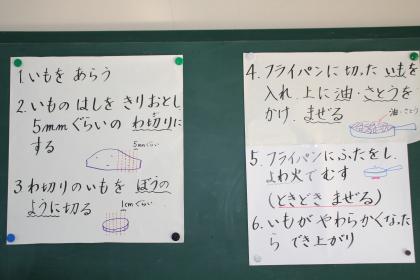 1. いもを あらう
2. いもの はしを きりおとし
5mmぐらいの わ切りに
する
5mmぐらい
3 わ切りのいもを ぼうの
ように切る
1cmぐらい
4. フライパンに 切った いもを
入れ、上に 油・さとうを
かけ、まぜる
油・さとう
5. フライパンにふたをし、
よわ火で むす
(ときどき まぜる)
6. いもが やわらかくなった
ら でき上がり